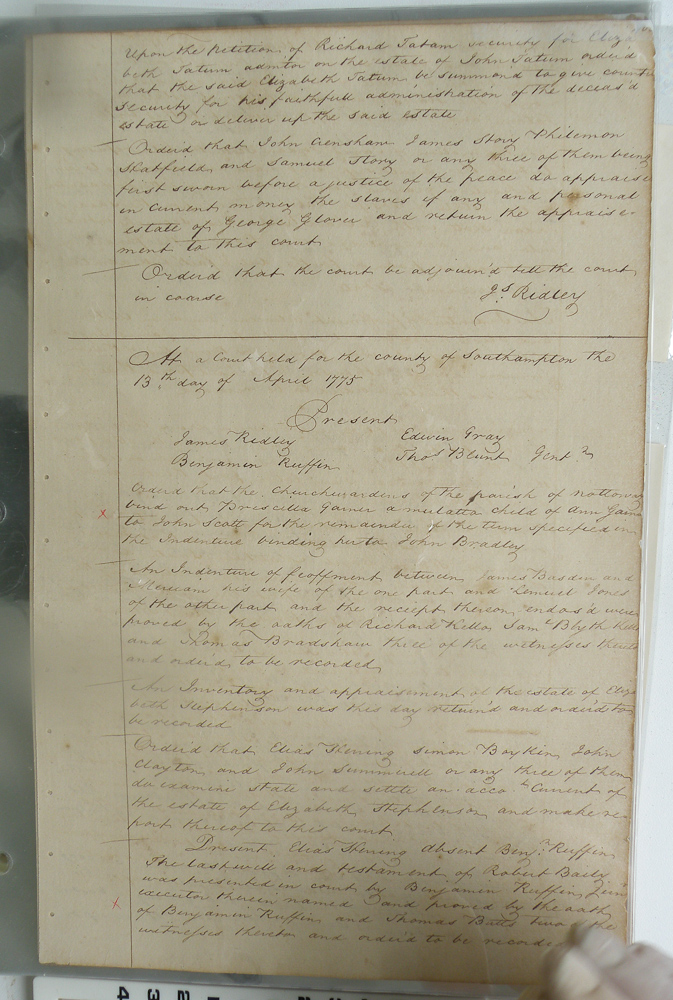 Upon the Petition of Richard Tatum security for Eliza
beth Tatum admtor on the estate of John Tatum orderd
that the said Elizabeth Tatum be summond to give counter
security for his faithfull administration of the deceas'd
estate or deliver up the said estate
Orderd that John Crenshaw James Story Philemon
Hatfield and Samuel Story or any three of them being
first sworn before a justice of the peace do appraise
in current money the slaves if any and personal
estate of George Glover and return the appraise-
ment to this court
Orderd that the court be adjourn'd till the court
in course
Js Ridley
At a Court held for the county of Southampton the
13th day of April 1775
Present
James Ridley Edwin Gray
Benjamin Ruffin Thos Blunt Gentn
Orderd that the Churchwardens of the parish of nottoway
bind out Priscilla Gainer a mulatto child of Ann Gainer
to John Scott for the remainder of the term specified in
the Indenture binding her to John Bradley
An Indenture of feoffment between James Basden and
his wife of the one part and Lemuel Jones
of the other part and the receipt thereon endors'd were
proved by the oaths of Richard Kello Saml Blyth Kello
and Thomas Bradshaw three of the witnesses thereto
and orderd to be recorded
An Inventory and appraisement of the estate of Eliza
beth Stephenson was this day return'd and orderd to
be recorded
Orderd that Elias Herring simon Boykin John
Clayton and John Summerell or any three of them
do examine state and settle an accot Current of
the estate of Elizabeth Stephenson and make re-
port thereof to this court
Present Elias Herring Absent Benjn Ruffin
The last will and testament of Robert Baily
was presented in court by Benjamin Ruffin Junr
executor therein named and proved by the oath
of Benjamin Ruffin and Thomas Batts two of the
witnesses thereto and orderd to be recorded
4 3